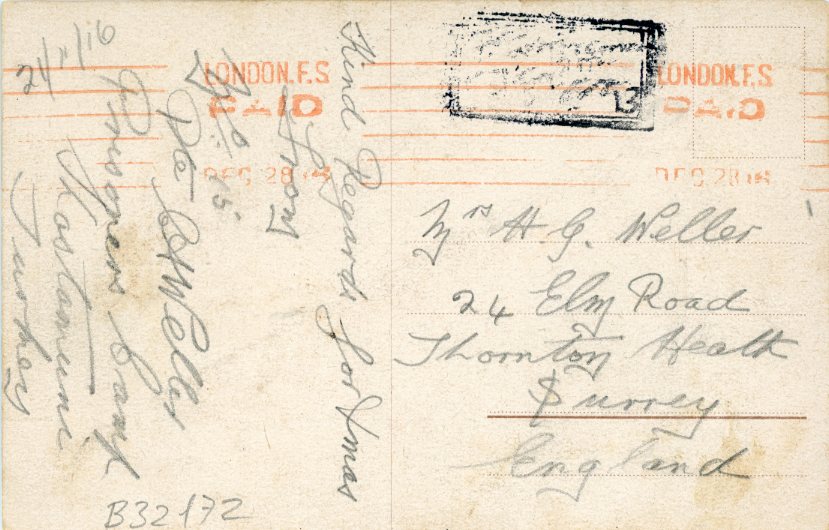 24/11/16
Kind Regards for Xmas
From
Pte Weller
Prisoners Camp
Kastamuni
Turkey
B32172
LONDON.F.S
PAID
DEC 28
13
LONDON.F.S
PAID
DEC 28
Mrs H G. Weller
24 Elm Road
Thornton Heath
Surrey
England